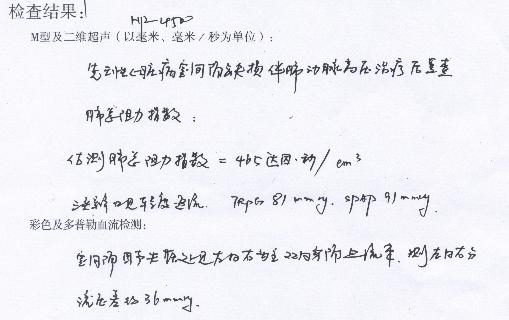 检查结果:
HP-4500
M型及二维超声（以毫米、毫米／秒为单位）:
先天性心脏病室间隔缺损伴肺动脉高压治疗后复查
肺总阻力指数：
估测肺总阻力指数 = 465达因·秒/cm³
三尖瓣口见轻度返流. TRPG 81mmHg. SPAP 91mmHg.
彩色及多普勒血流检测:
室间隔 左向右为主双向 流束. 测左向右分
流压差约36mmHg.